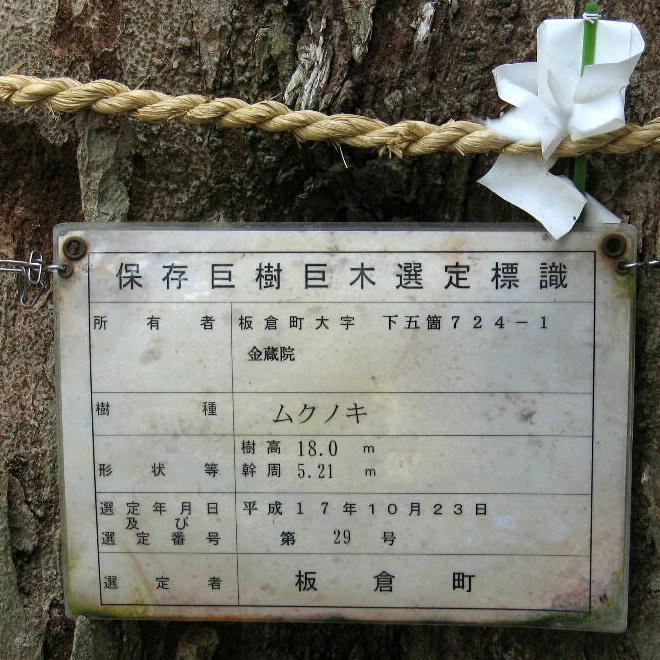 保存巨樹巨木選定標識
所有者 板倉町大字 下五箇724-1
金蔵院
樹種 ムクノキ
形状等 樹高 18.0 m
幹周 5.21 m
選定年月日 平成17年10月23日
及び
選定番号 第 29 号
選定者 板倉町